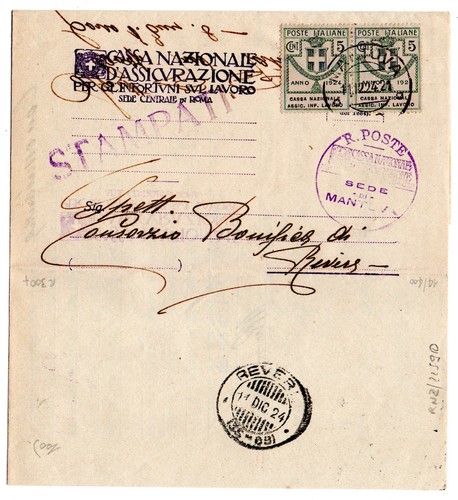 CASSA NAZIONALE
D'ASSICURAZIONE
PER GL'INFORTUNI SUL LAVORO
SEDE CENTRALE IN ROMA
POSTE ITALIANE POSTE ITALIANE
CENT 5 5
ANNO 1924 ANNO 192
CASSA NAZIONALE CASSA NAZIONALE
ASSIC. INF. LAVORO ASSIC. INF. LAVORO
STAMPA
R. POSTE
CASSA NAZIONALE
SEDE
DI
MANTOVA
Sig. Spett
Consorzio Bonifica di
Revere
R 300+
10/600
RNZ/22590
100)
REVER
11 DIC 24